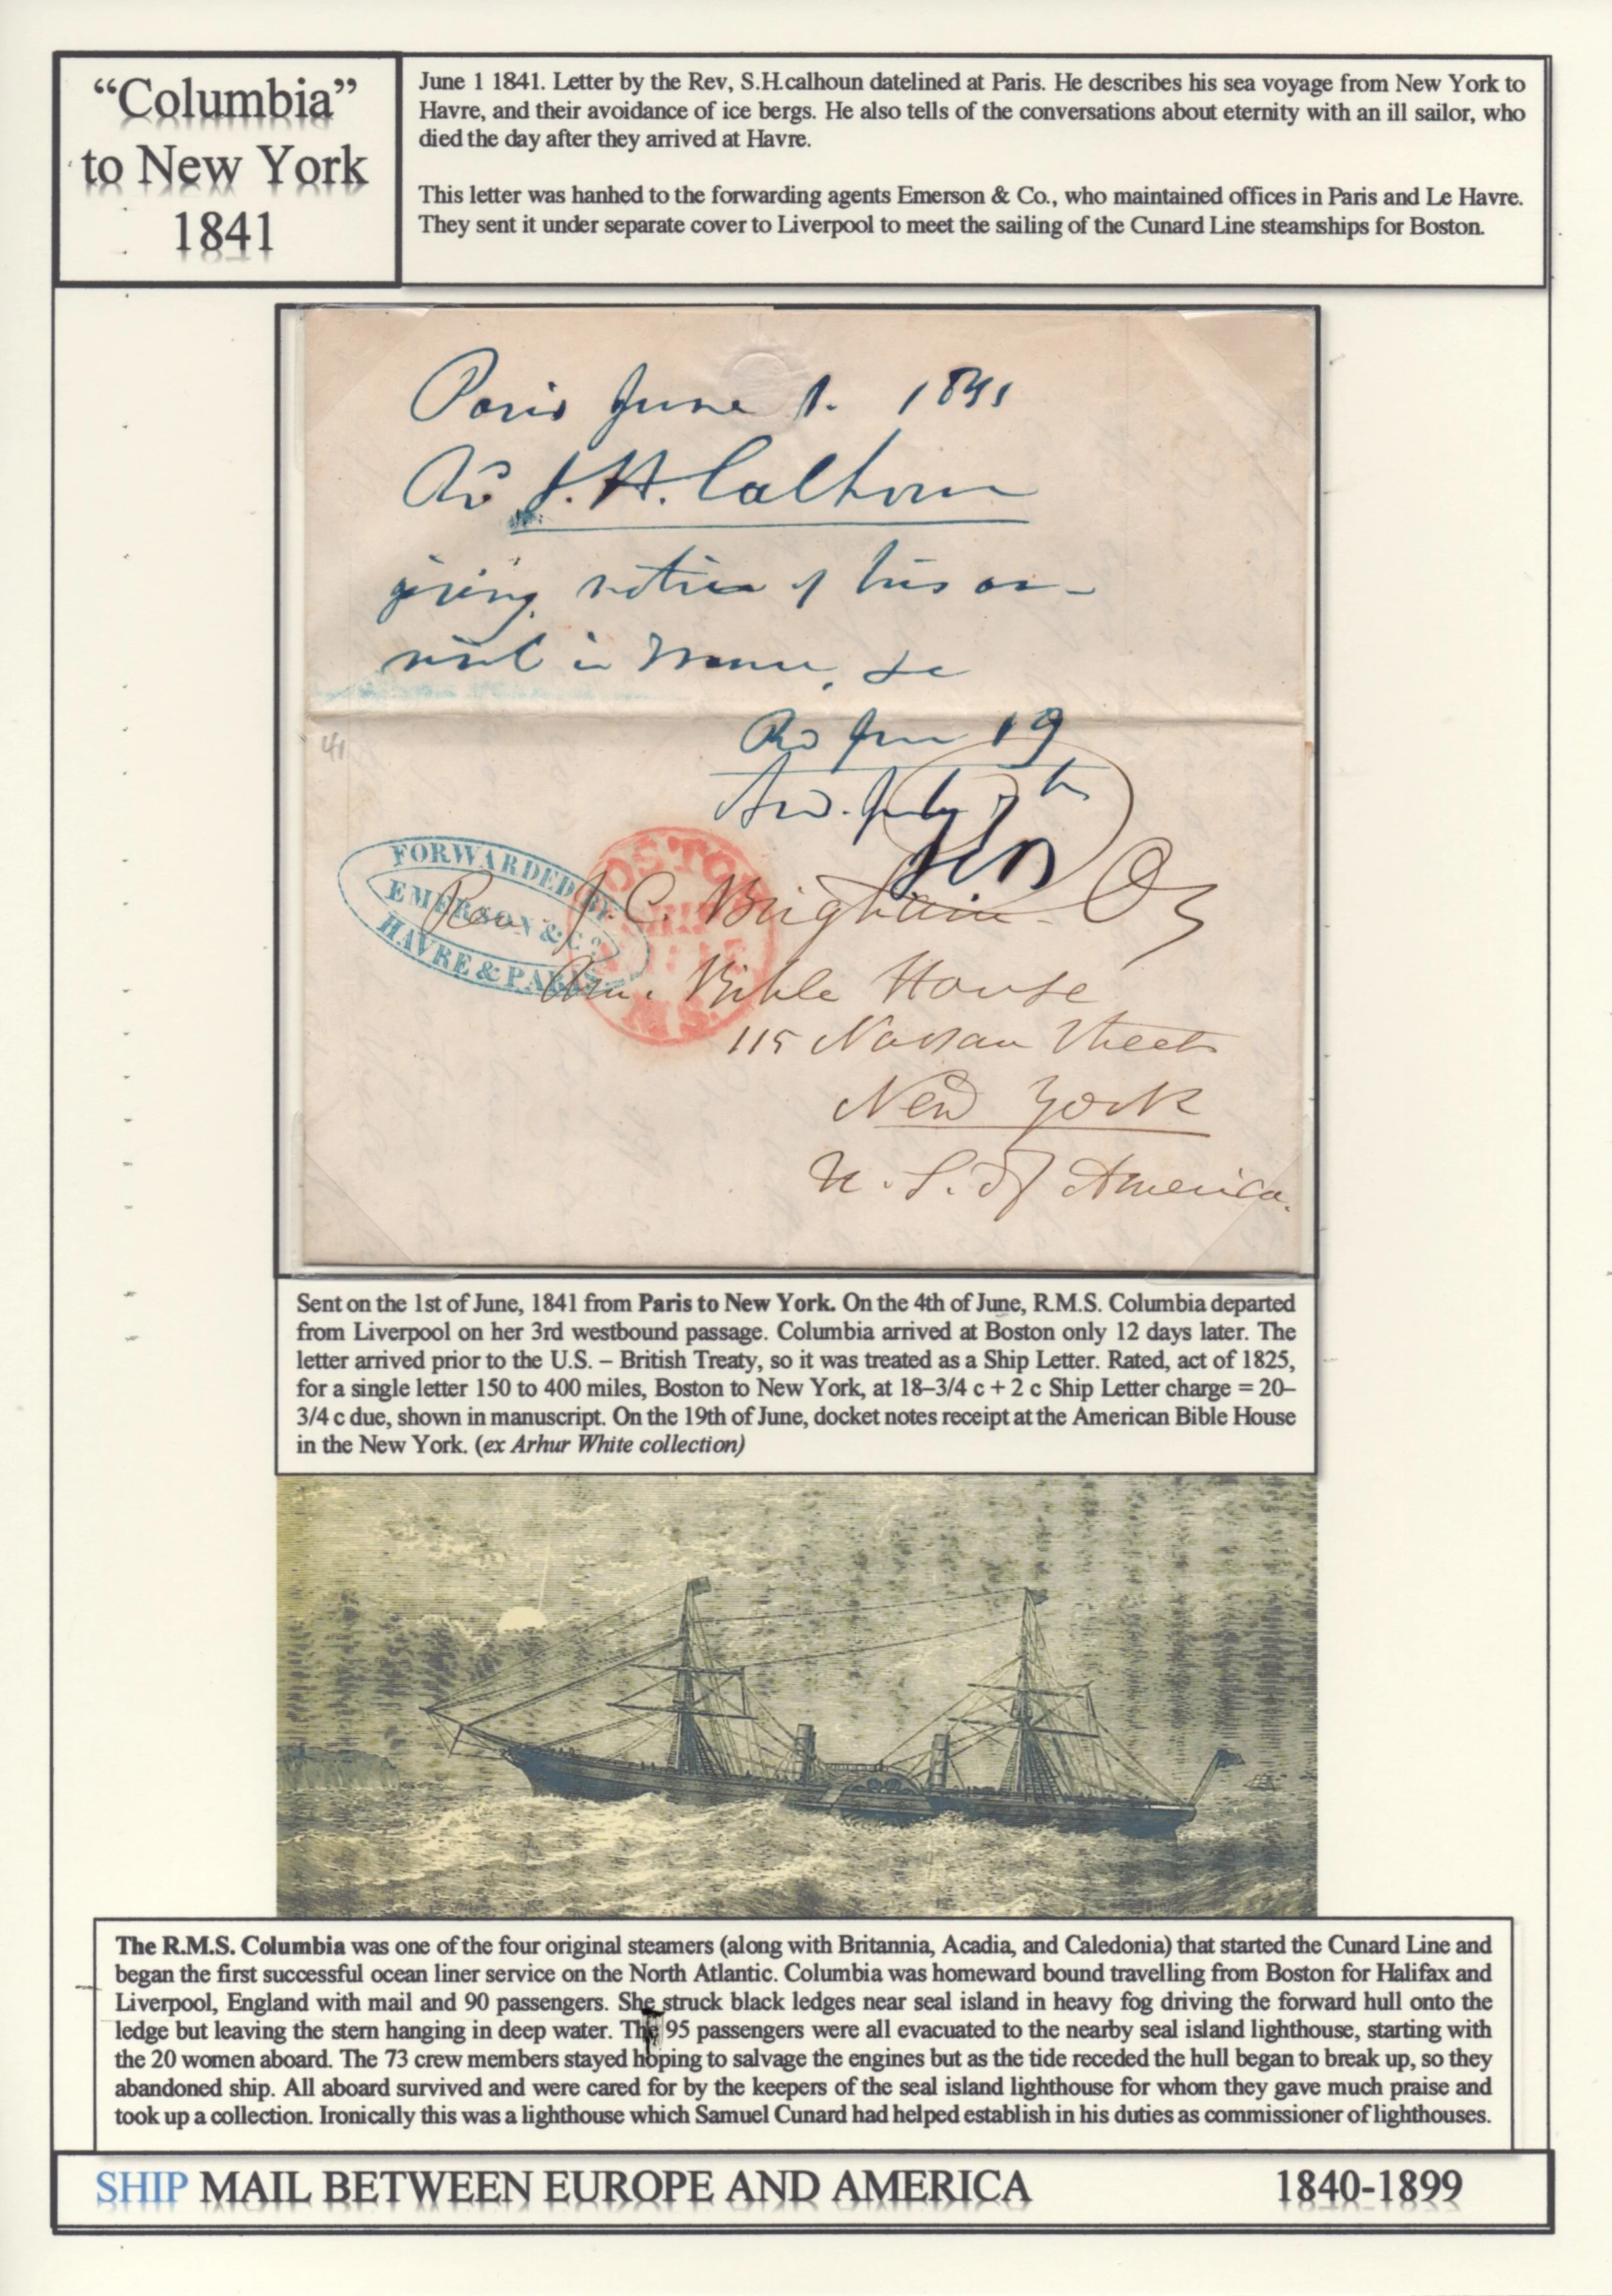 “Columbia”
to New York
1841
June 1 1841. Letter by the Rev, S.H.calhoun datelined at Paris. He describes his sea voyage from New York to
Havre, and their avoidance of ice bergs. He also tells of the conversations about eternity with an ill sailor, who
died the day after they arrived at Havre.
This letter was hanhed to the forwarding agents Emerson & Co., who maintained offices in Paris and Le Havre.
They sent it under separate cover to Liverpool to meet the sailing of the Cunard Line steamships for Boston.
Paris June 1. 1841
S. H. Calhoun
giving notice of his ar-
rival in France, &c
Rd June 19
July 7th
41
FORWARDED BY
EMERSON & Co
HAVRE & PARIS
BOSTON
SHIP
MS.
Rev J. C. Brigham
Am. Bible House
115 Nassau Street
New York
U. S. of America.
Sent on the 1st of June, 1841 from Paris to New York. On the 4th of June, R.M.S. Columbia departed
from Liverpool on her 3rd westbound passage. Columbia arrived at Boston only 12 days later. The
letter arrived prior to the U.S. – British Treaty, so it was treated as a Ship Letter. Rated, act of 1825,
for a single letter 150 to 400 miles, Boston to New York, at 18–3/4 c + 2 c Ship Letter charge = 20–
3/4 c due, shown in manuscript. On the 19th of June, docket notes receipt at the American Bible House
in the New York. (ex Arhur White collection)
The R.M.S. Columbia was one of the four original steamers (along with Britannia, Acadia, and Caledonia) that started the Cunard Line and
began the first successful ocean liner service on the North Atlantic. Columbia was homeward bound travelling from Boston for Halifax and
Liverpool, England with mail and 90 passengers. She struck black ledges near seal island in heavy fog driving the forward hull onto the
ledge but leaving the stern hanging in deep water. The 95 passengers were all evacuated to the nearby seal island lighthouse, starting with
the 20 women aboard. The 73 crew members stayed hoping to salvage the engines but as the tide receded the hull began to break up, so they
abandoned ship. All aboard survived and were cared for by the keepers of the seal island lighthouse for whom they gave much praise and
took up a collection. Ironically this was a lighthouse which Samuel Cunard had helped establish in his duties as commissioner of lighthouses.
SHIP MAIL BETWEEN EUROPE AND AMERICA 1840-1899